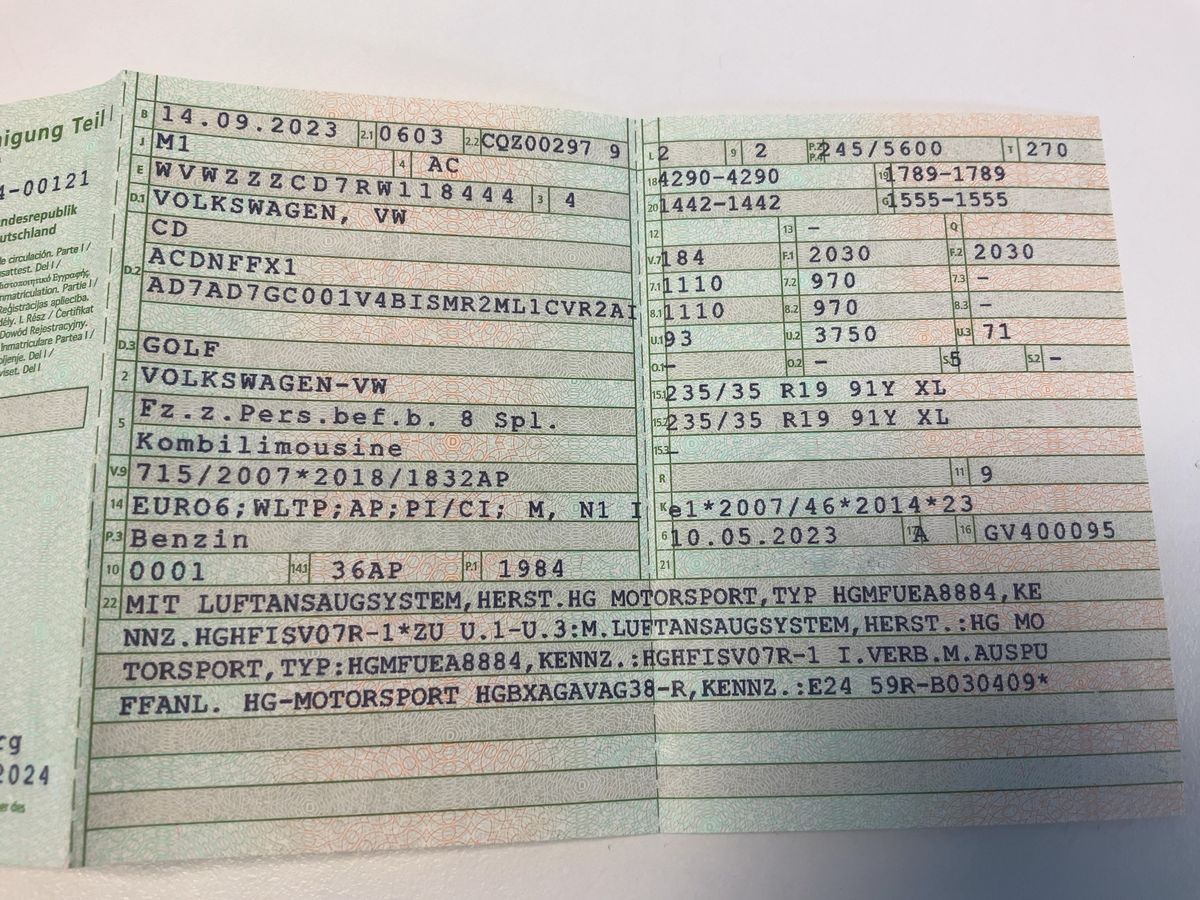 nigung Teil I
4-00121
ndesrepublik
utschland
de circulación. Parte I /
Inmatriculation. Partie I /
Reģistrācijas apliecība.
dély. I. Rész / Ċertifikat
Dowód Rejestracyjny.
Inmatriculare Partea I /
viset. Del I
rg
2024
er des
B 14.09.2023 2.1 0603 2.2 CQZ00297 9
J M1 4 AC
E WVWZZZCD7RW118444 3 4
D.1 VOLKSWAGEN, VW
D.2 CD
ACDNFFX1
AD7AD7GC001V4BISMR2ML1CVR2AI
D.3 GOLF
2 VOLKSWAGEN-VW
5 Fz.z.Pers.bef.b. 8 Spl.
Kombilimousine
V.9 715/2007*2018/1832AP
14 EURO6;WLTP;AP;PI/CI; M, N1 I
P.3 Benzin
10 0001 14.1 36AP P.1 1984
L 2 9 2 P.2 P.4 245/5600 T 270
18 4290-4290 19 1789-1789
20 1442-1442 G 1555-1555
12 13 - Q
V.7 184 F.1 2030 F.2 2030
7.1 1110 7.2 970 7.3 -
8.1 1110 8.2 970 8.3 -
U.1 93 U.2 3750 U.3 71
O.1 - O.2 - S.1 5 S.2 -
15.1 235/35 R19 91Y XL
15.2 235/35 R19 91Y XL
15.3 -
R 11 9
K e1*2007/46*2014*23
6 10.05.2023 17 A 16 GV400095
21
22 MIT LUFTANSAUGSYSTEM,HERST.HG MOTORSPORT,TYP HGMFUEA8884,KE
NNZ.HGHFISV07R-1*ZU U.1-U.3:M.LUFTANSAUGSYSTEM,HERST.:HG MO
TORSPORT,TYP:HGMFUEA8884,KENNZ.:HGHFISV07R-1 I.VERB.M.AUSPU
FFANL. HG-MOTORSPORT HGBXAGAVAG38-R,KENNZ.:E24 59R-B030409*